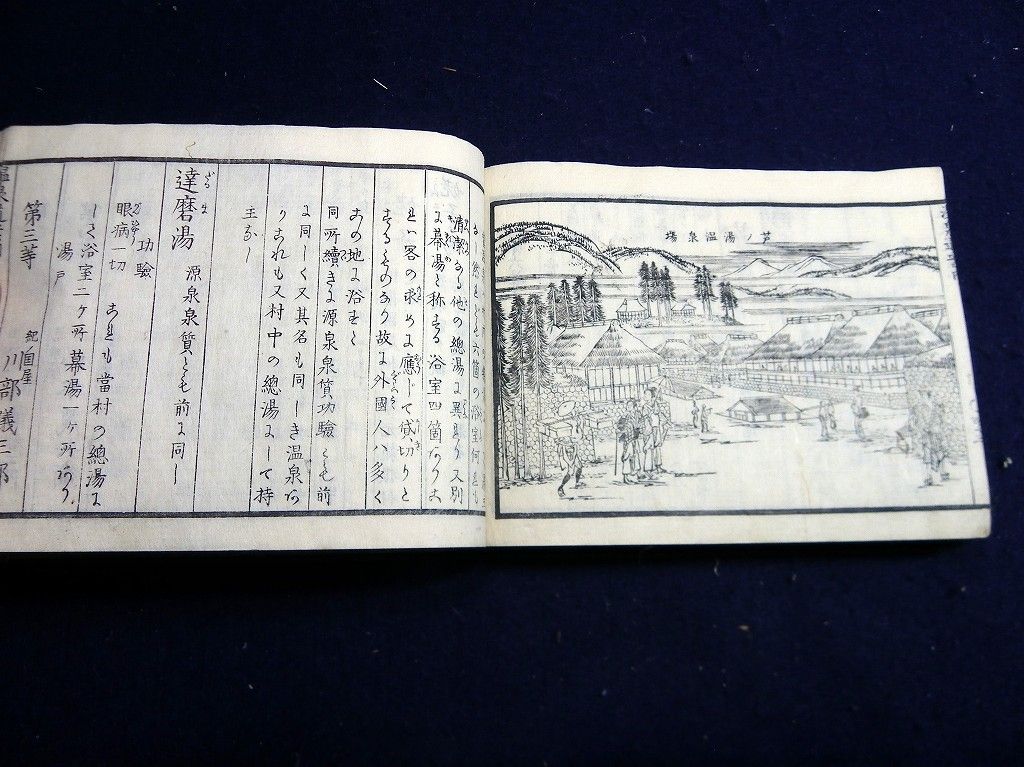 芦ノ湯温泉場
清潔なる他の總湯に異なり又別
に幕湯と称する浴室四箇あり大
概ハ客の求めに應じて貸切りと
するものあり故に外國人ハ多く
この地に浴せし
同所續きに源泉泉質功驗とも前
に同しく又其名も同しき温泉あ
りこれも又村中の總湯にして持
主なし
達磨湯 源泉泉質とも前に同し
功驗
眼病一切
これも當村の總湯に
して浴室二ケ所幕湯一ケ所あり
湯戸
第三等 紀国屋 川部儀三郎